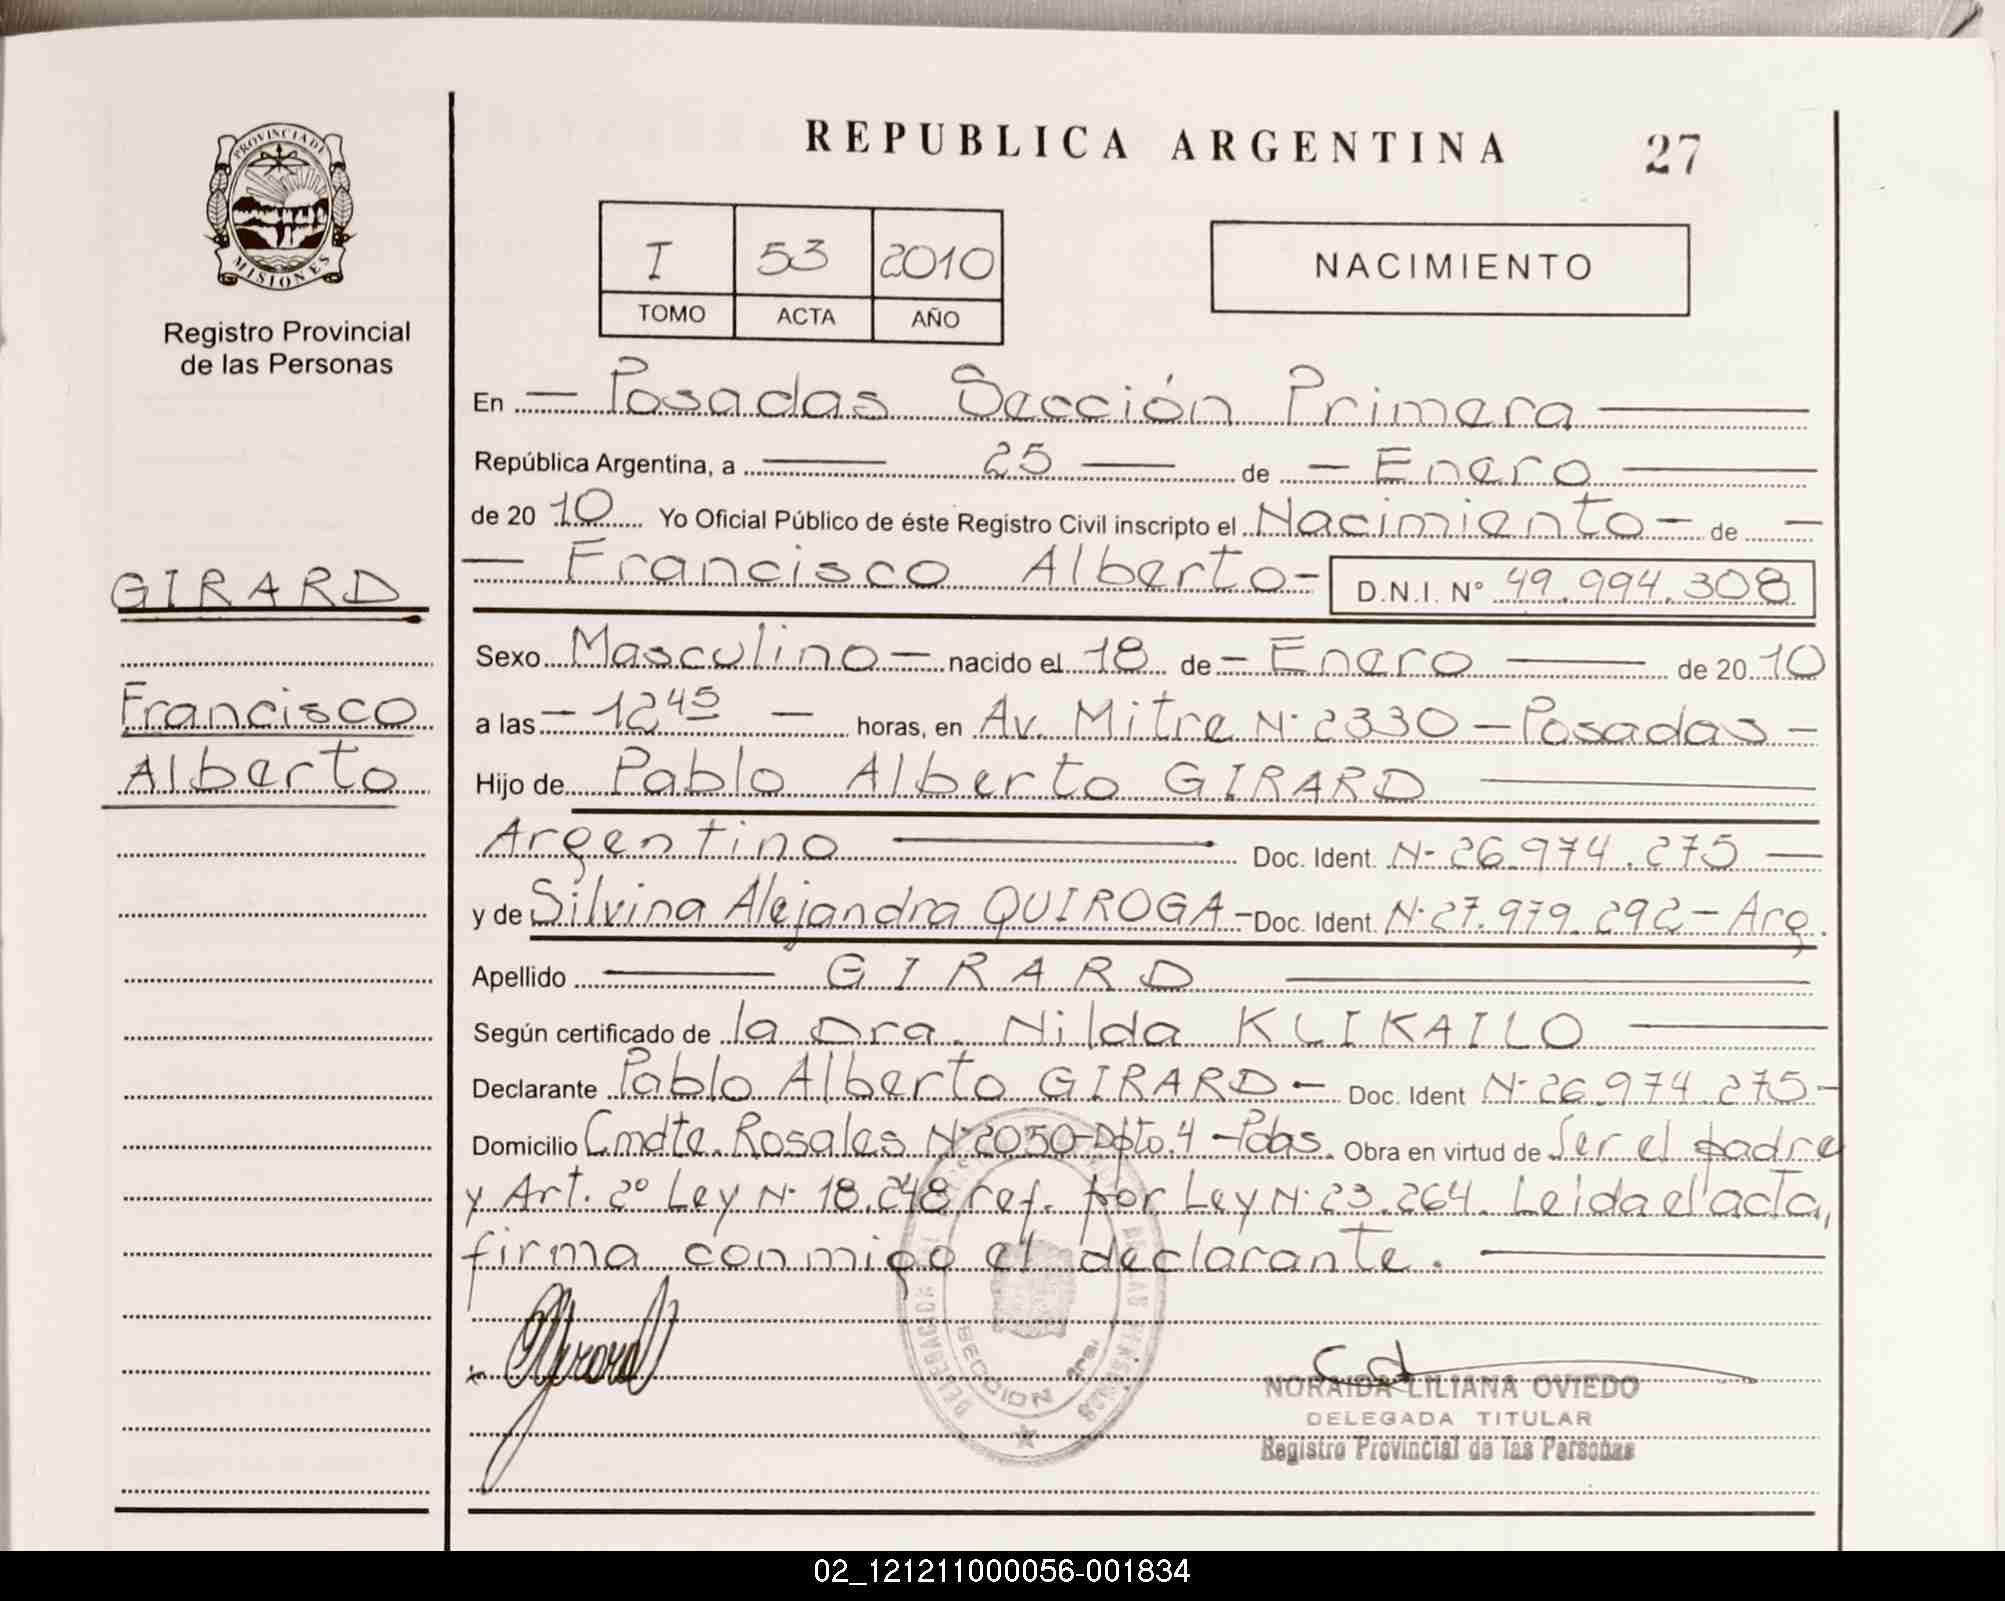 PROVINCIA DE
MISIONES
Registro Provincial
de las Personas
GIRARD
Francisco
Alberto
REPUBLICA ARGENTINA 27
I 53 2010
TOMO ACTA AÑO
NACIMIENTO
En — Posadas Sección Primera —
República Argentina, a — 25 — de — Enero —
de 20 10 Yo Oficial Público de éste Registro Civil inscripto el Nacimiento — de —
— Francisco Alberto — D.N.I. Nº 49.994.308
Sexo Masculino — nacido el 18 de — Enero — de 20 10
a las — 12 45 — horas, en Av. Mitre N· 2330 — Posadas —
Hijo de Pablo Alberto GIRARD —
Argentino — Doc. Ident. N- 26.974.275 —
y de Silvina Alejandra QUIROGA — Doc. Ident. N· 27.979.292 — Arg.
Apellido — GIRARD —
Según certificado de la Dra. Nilda KLIKAILO —
Declarante Pablo Alberto GIRARD — Doc. Ident N- 26.974.275 —
Domicilio Cmdte. Rosales N· 2050 - Dpto. 4 - Pdas. Obra en virtud de Ser el padre
y Art. 2º Ley N· 18.248 ref. por Ley N· 23.264. Leida el acta,
firma conmigo el declarante. —
SECCION 1ra.
NORAIDA LILIANA OVIEDO
DELEGADA TITULAR
Registro Provincial de las Personas
02_121211000056-001834